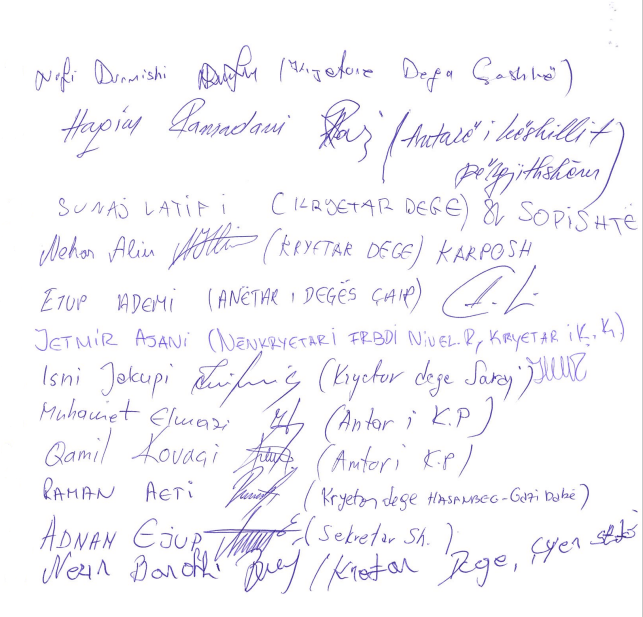 Nefi Durmishi (Kryetare Dega Gashkë)
Hapim Ramadani (Antarë i këshillit
përgjithshëm)
SUNAJ LATIFI (KRYETAR DEGE) SOPISHTË
Nehar Aliu (KRYETAR DEGE) KARPOSH
EJUP ADEMI (ANËTAR I DEGËS ÇAIR)
JETMIR AJANI (NËNKRYETARI FRBDI NIVEL.R, KRYETAR i K.K)
Isni Jakupi (Kryetar dege Saraj)
Muhamet Elmazi (Antar i K.P)
Qamil Kovaçi (Antar i K.P)
RAMAN AETI (Kryetar dege HASANBEG-Gazi Babë)
ADNAN EJUP (Sekretar Sh.)
Nezir Barothi (Kretar Dege,